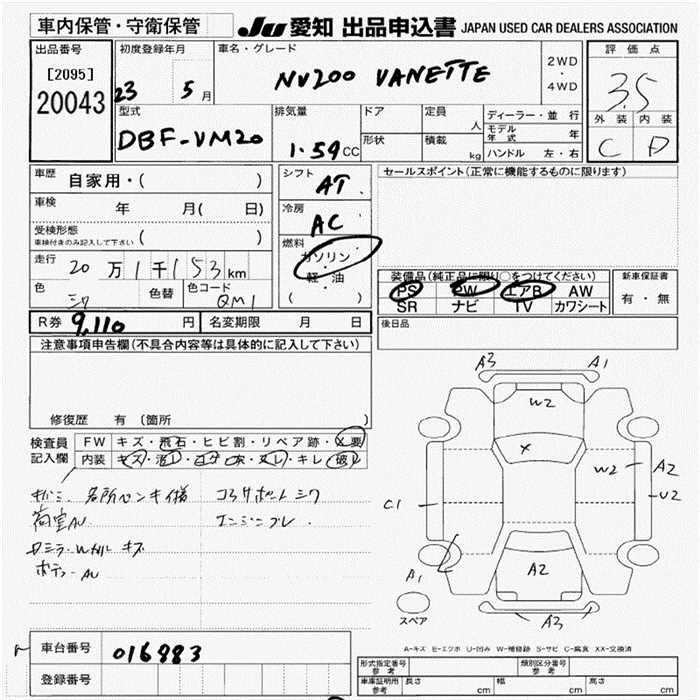 車内保管・守衛保管
JU 愛知 出品申込書 JAPAN USED CAR DEALERS ASSOCIATION
出品番号 初度登録年月 車名・グレード 2WD・4WD 評価点
[2095]
20043
23 5月
NV200 VANETTE
3.5
型式 排気量 ドア 定員 人 ディーラー・並行
DBF-VM20 1.59CC 形状 積載 kg モデル年式 年
ハンドル 左・右
外装 内装
C D
車歴 自家用・( )
車検 年 月( 日)
受検形態 ( )
車検付きのみ記入して下さい
走行 20万1千153km
色 シロ 色替 色コード QM1
シフト AT
冷房 AC
燃料 ガソリン・軽・油
( )
セールスポイント(正常に機能するものに限ります)
装備品(純正品に限り○をつけてください) 新車保証書
PS PW エアB AW 有・無
SR ナビ TV カワシート
後日品
R券 9,110円 名変期限 月 日
注意事項申告欄(不具合内容等は具体的に記入して下さい)
修復歴 有 (箇所 )
検査員記入欄
FW キズ・飛石・ヒビ割・リペア跡・X要
内装 キズ・汚レ・コゲ・穴・スレ・キレ・破レ
キズ ヘコミ 各所ペンキ様 コアサポートシワ
荷室AU エンジンブレ.
キズ
ボデー AU
A3 A1
W2
X
W2 A2
U2
C1
A1
A2
A3
スペア
A-キズ E-エクボ U-凹み W-補修跡 S-サビ C-腐食 XX-交換済
車台番号 016983
登録番号
形式指定番号 参考 類別区分番号 参考
車庫証明用 参考 長さ cm 幅 cm 高さ cm